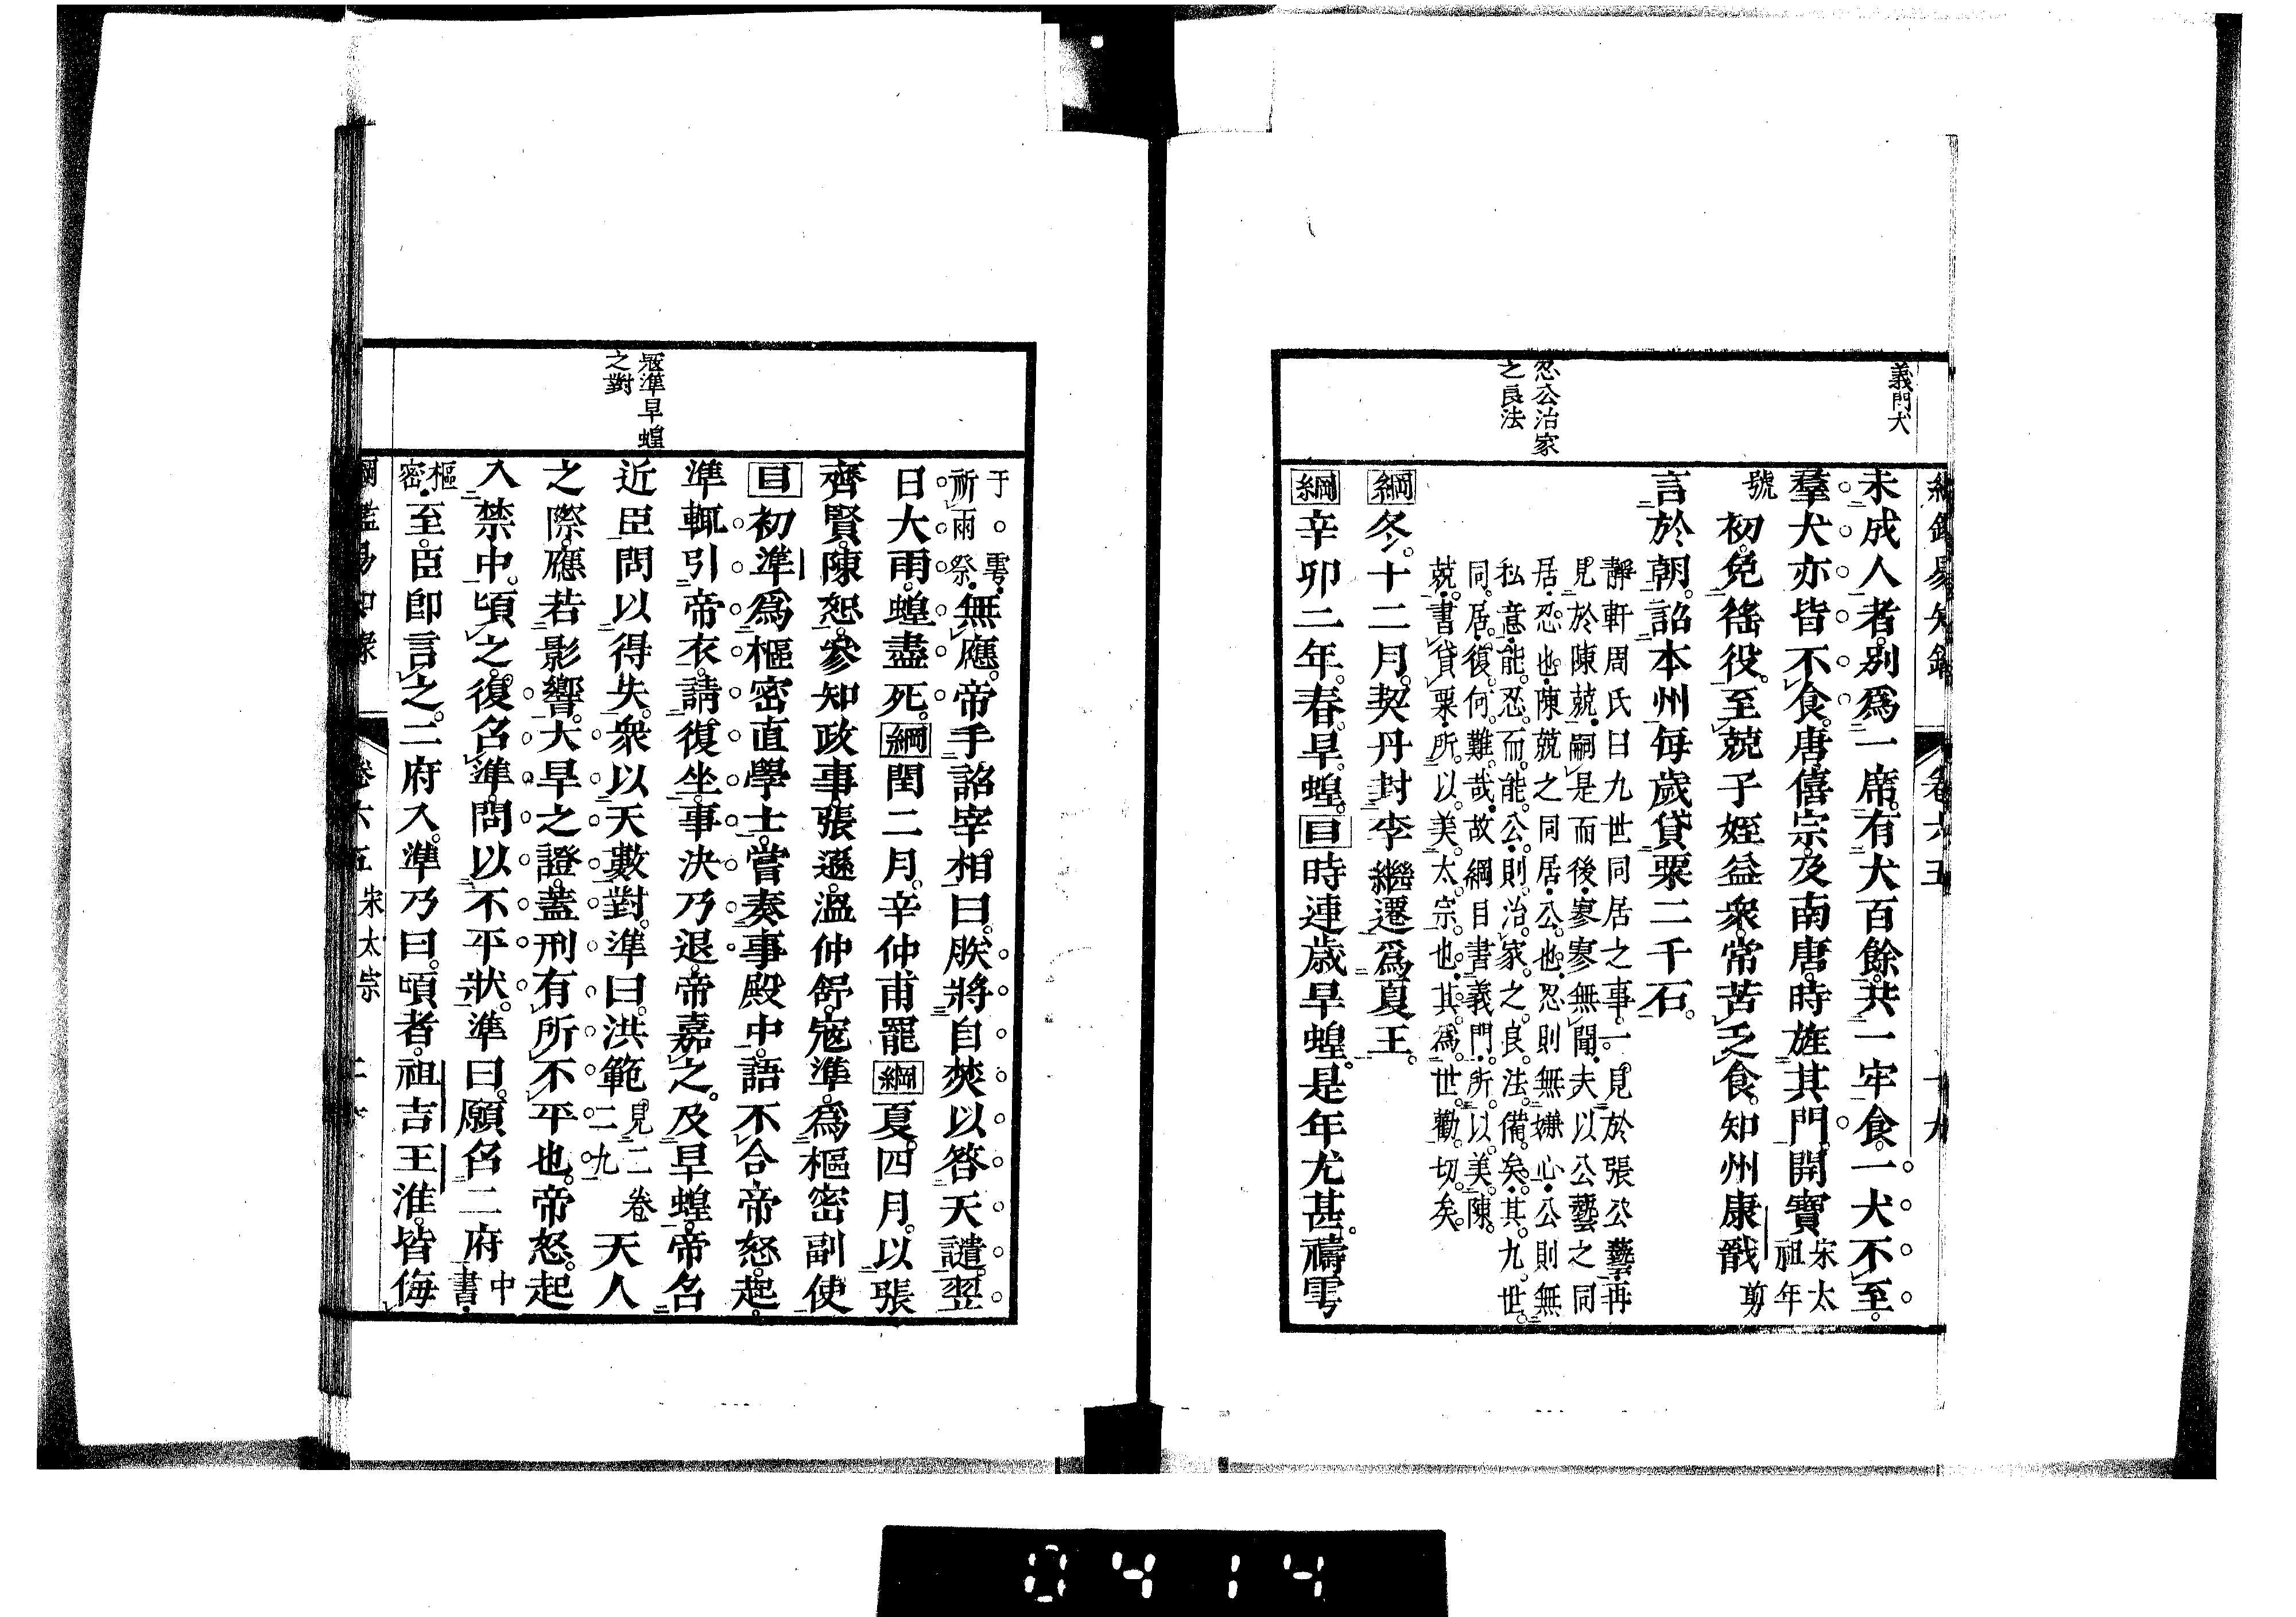 義門犬
忍公治家
之良法
未成人者別爲一席有犬百餘共一牢食一犬不至
羣犬亦皆不食唐僖宗及南唐時旌其門開寶宋太祖年
號初免徭役至兢子姪益衆常苦乏食知州康戩剪
言於朝詔本州每歲貸粟二千石
靜軒周氏曰九世同居之事一見於張公藝再
見於陳兢嗣是而後寥寥無聞夫以公藝之同
居忍也陳兢之同居公也忍則無嫌心公則無
私意能忍而能公則治家之良法備矣其九世
同居復何難哉故綱目書義門所以美陳
兢書貸粟所以美太宗也其爲世勸切矣
綱冬十二月契丹封李繼遷爲夏王
綱辛卯二年春旱蝗目時連歲旱蝗是年尤甚禱雩
寇準旱蝗
之對
于雩祈雨祭無應帝手詔宰相曰朕將自焚以答天譴翌
日大雨蝗盡死綱閏二月辛仲甫罷綱夏四月以張
齊賢陳恕參知政事張遜溫仲舒寇準爲樞密副使
目初準爲樞密直學士嘗奏事殿中語不合帝怒起
準輒引帝衣請復坐事決乃退帝嘉之及旱蝗帝召
近臣問以得失衆以天數對準曰洪範見二卷二九天人
之際應若影響大旱之證蓋刑有所不平也帝怒起
入禁中頃之復召準問以不平狀準曰願召二府中書
樞密至臣卽言之二府入準乃曰頃者祖吉王淮皆侮
卷六五 宋太宗